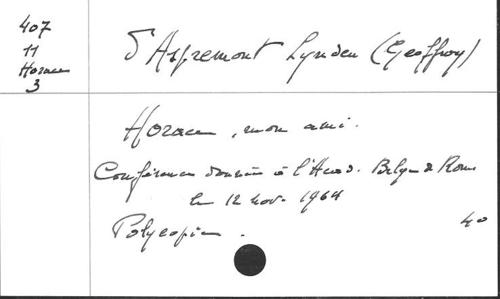 407
11
Horace
3
d'Aspremont Lynden (Geoffroy)
Horace, mon ami.
Conférence donnée à l'Acad. Belge de Rome
le 12 nov. 1964
Polycopie.
40